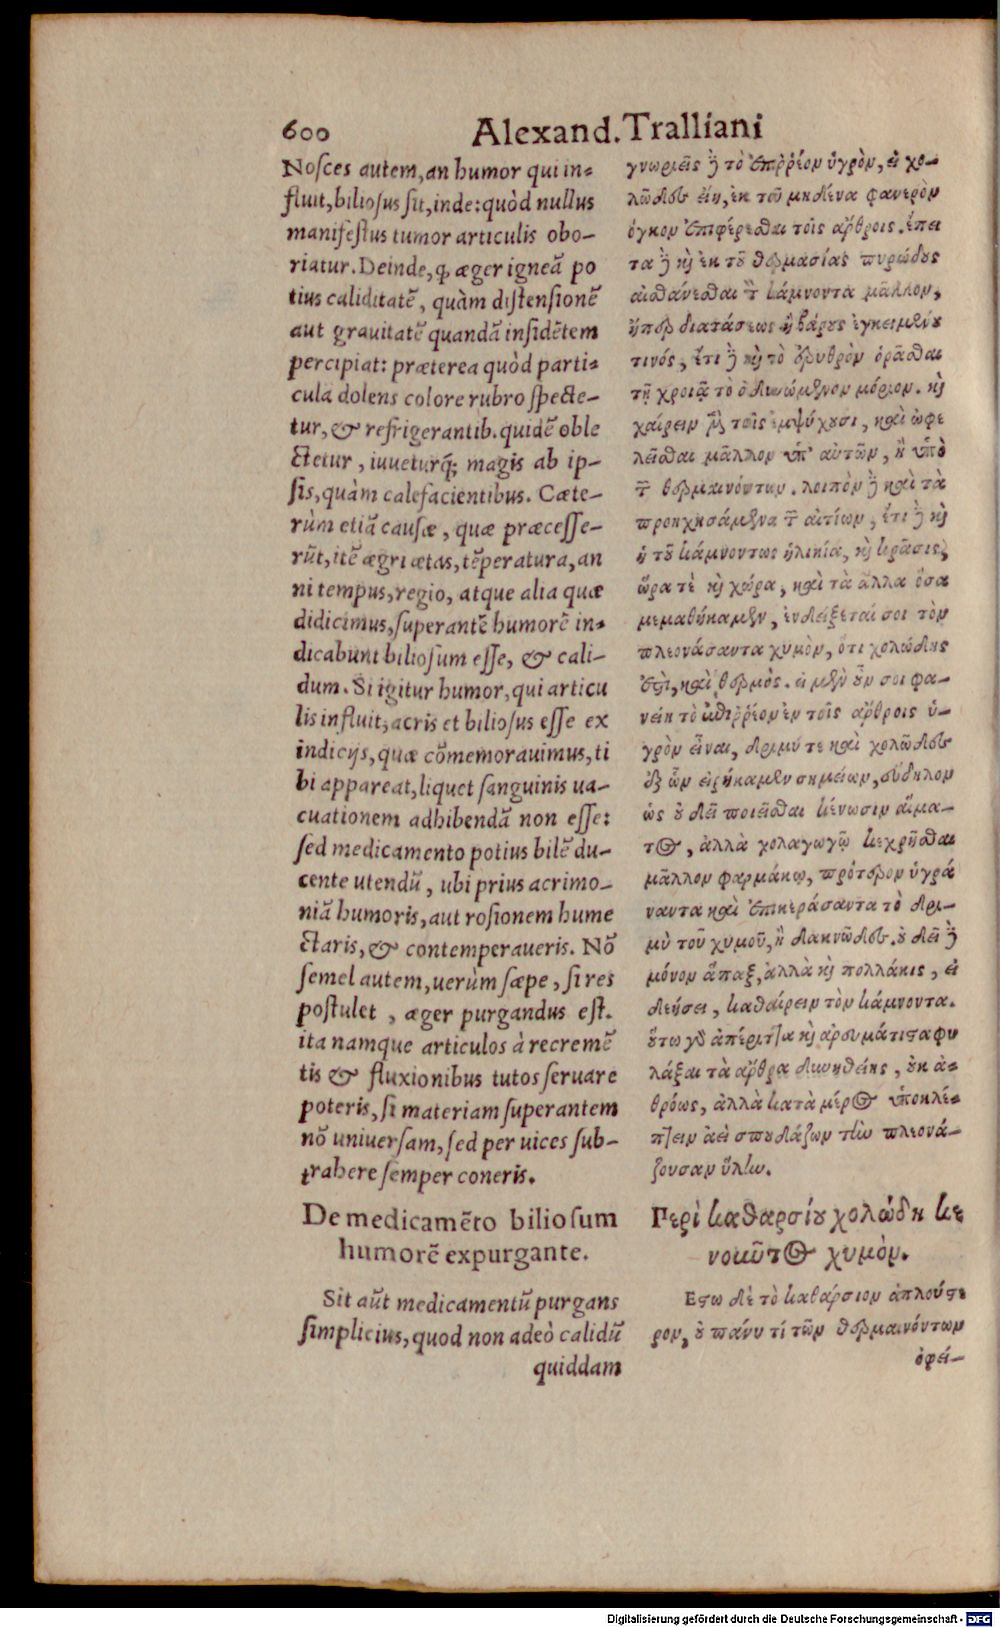 600 Alexand. Tralliani
Noſces autem, an humor qui in-
fluit, bilioſus ſit, inde: quòd nullus
manifeſtus tumor articulis obo-
riatur. Deinde, ꝙ æger igneã po
tius caliditatẽ, quàm diſtenſionẽ
aut grauitatẽ quandã inſidẽtem
percipiat: præterea quòd parti-
cula dolens colore rubro ſpecte-
tur, & refrigerantib. quidẽ oble
ctetur, iuueturq́; magis ab ip-
ſis, quàm calefacientibus. Cæte-
rùm etiã cauſæ, quæ præceſſe-
rũt, itẽ ægri ætas, tẽperatura, an
ni tempus, regio, atque alia quæ
didicimus, ſuperantẽ humorẽ in-
dicabunt bilioſum eſſe, & cali-
dum. Si igitur humor, qui articu
lis influit, acris et bilioſus eſſe ex
indicijs, quæ cõmemorauimus, ti
bi appareat, liquet ſanguinis ua-
cuationem adhibendã non eſſe:
ſed medicamento potius bilẽ du-
cente utendũ, ubi prius acrimo-
niã humoris, aut roſionem hume
ctaris, & contemperaueris. Nõ
ſemel autem, uerùm ſæpe, ſi res
poſtulet, æger purgandus eſt.
ita namque articulos à recremẽ
tis & fluxionibus tutos ſeruare
poteris, ſi materiam ſuperantem
nõ uniuerſam, ſed per uices ſub-
trahere ſemper coneris.
De medicamẽto bilioſum
humorẽ expurgante.
Sit aũt medicamentũ purgans
ſimplicius, quod non adeò calidũ
quiddam
γνωριεῖς ἢ τὸ ἐπιῤῥέον ὑγρὸν, εἰ χο-
λῶδες εἴη, ἐκ τοῦ μηδένα φανερὸν
ὄγκον ἐπιφέρεσθαι τοῖς ἄρθροις. ἔπει
τα ἢ κỳ ἐκ τοῦ θερμασίας πυρώδους
αἰσθάνεσθαι τὸν κάμνοντα μᾶλλον,
ἤπερ διατάσεως ἢ βάρους ἐγκειμένου
τινός, ἔτι ἢ κỳ τὸ ἐρυθρὸν ὁρᾶσθαι
τῇ χροιᾷ τὸ ὀδυνώμενον μόριον. κỳ
χαίρειν μὲν τοῖς ἐμψύχουσι, καὶ ὠφε
λεῖσθαι μᾶλλον ὑπ' αὐτῶν, ἢ ὑπὸ
τῶν θερμαινόντων. λοιπὸν ἢ καὶ τὰ
προηγησάμενα τῶν αἰτίων, ἔτι ἢ κỳ
ἡ τοῦ κάμνοντως ἡλικία, κỳ κρᾶσις,
ὥρα τὲ κỳ χώρα, καὶ τὰ ἄλλα ὅσα
μεμαθήκαμεν, ἐνδείξεταί σοι τὸν
πλεονάσαντα χυμὸν, ὅτι χολώδης
ἐστὶ, καὶ θερμός. εἰ μὲν οὖν σοι φα-
νείη τὸ ἐπιῤῥέον ἐν τοῖς ἄρθροις ὑ-
γρὸν εἶναι, δριμύ τε καὶ χολῶδες
ἐξ ὧν εἰρήκαμεν σημείων, εὔδηλον
ὡς οὐ δεῖ ποιεῖσθαι κένωσιν αἵμα-
τος, ἀλλὰ χολαγωγῷ κεχρῆσθαι
μᾶλλον φαρμάκῳ, πρότερον ὑγρά
ναντα καὶ ἐπικεράσαντα τὸ δρι-
μὺ τοῦ χυμοῦ, ἢ δακνῶδες. οὐ δεῖ ἢ
μόνον ἅπαξ, ἀλλὰ κỳ πολλάκις, εἰ
δεήσει, καθαίρειν τὸν κάμνοντα.
οὕτω γὰρ ἀπέριττα κỳ ἀρευμάτιστα φυ
λάξαι τὰ ἄρθρα δυνηθείης, οὐκ ἀ-
θρόως, ἀλλὰ κατὰ μέρος ὑποκλέ-
πτειν ἀεὶ σπουδάζων τὴν πλεονά-
ζουσαν ὕλην.
Περὶ καθαρσίου χολώδη κε
νοῦντος χυμὸν.
Εστω δὲ τὸ καθάρσιον ἁπλούστε
ρον, οὐ πάνυ τί τῶν θερμαινόντων
ὀφεί-
Digitalisierung gefördert durch die Deutsche Forschungsgemeinschaft - DFG